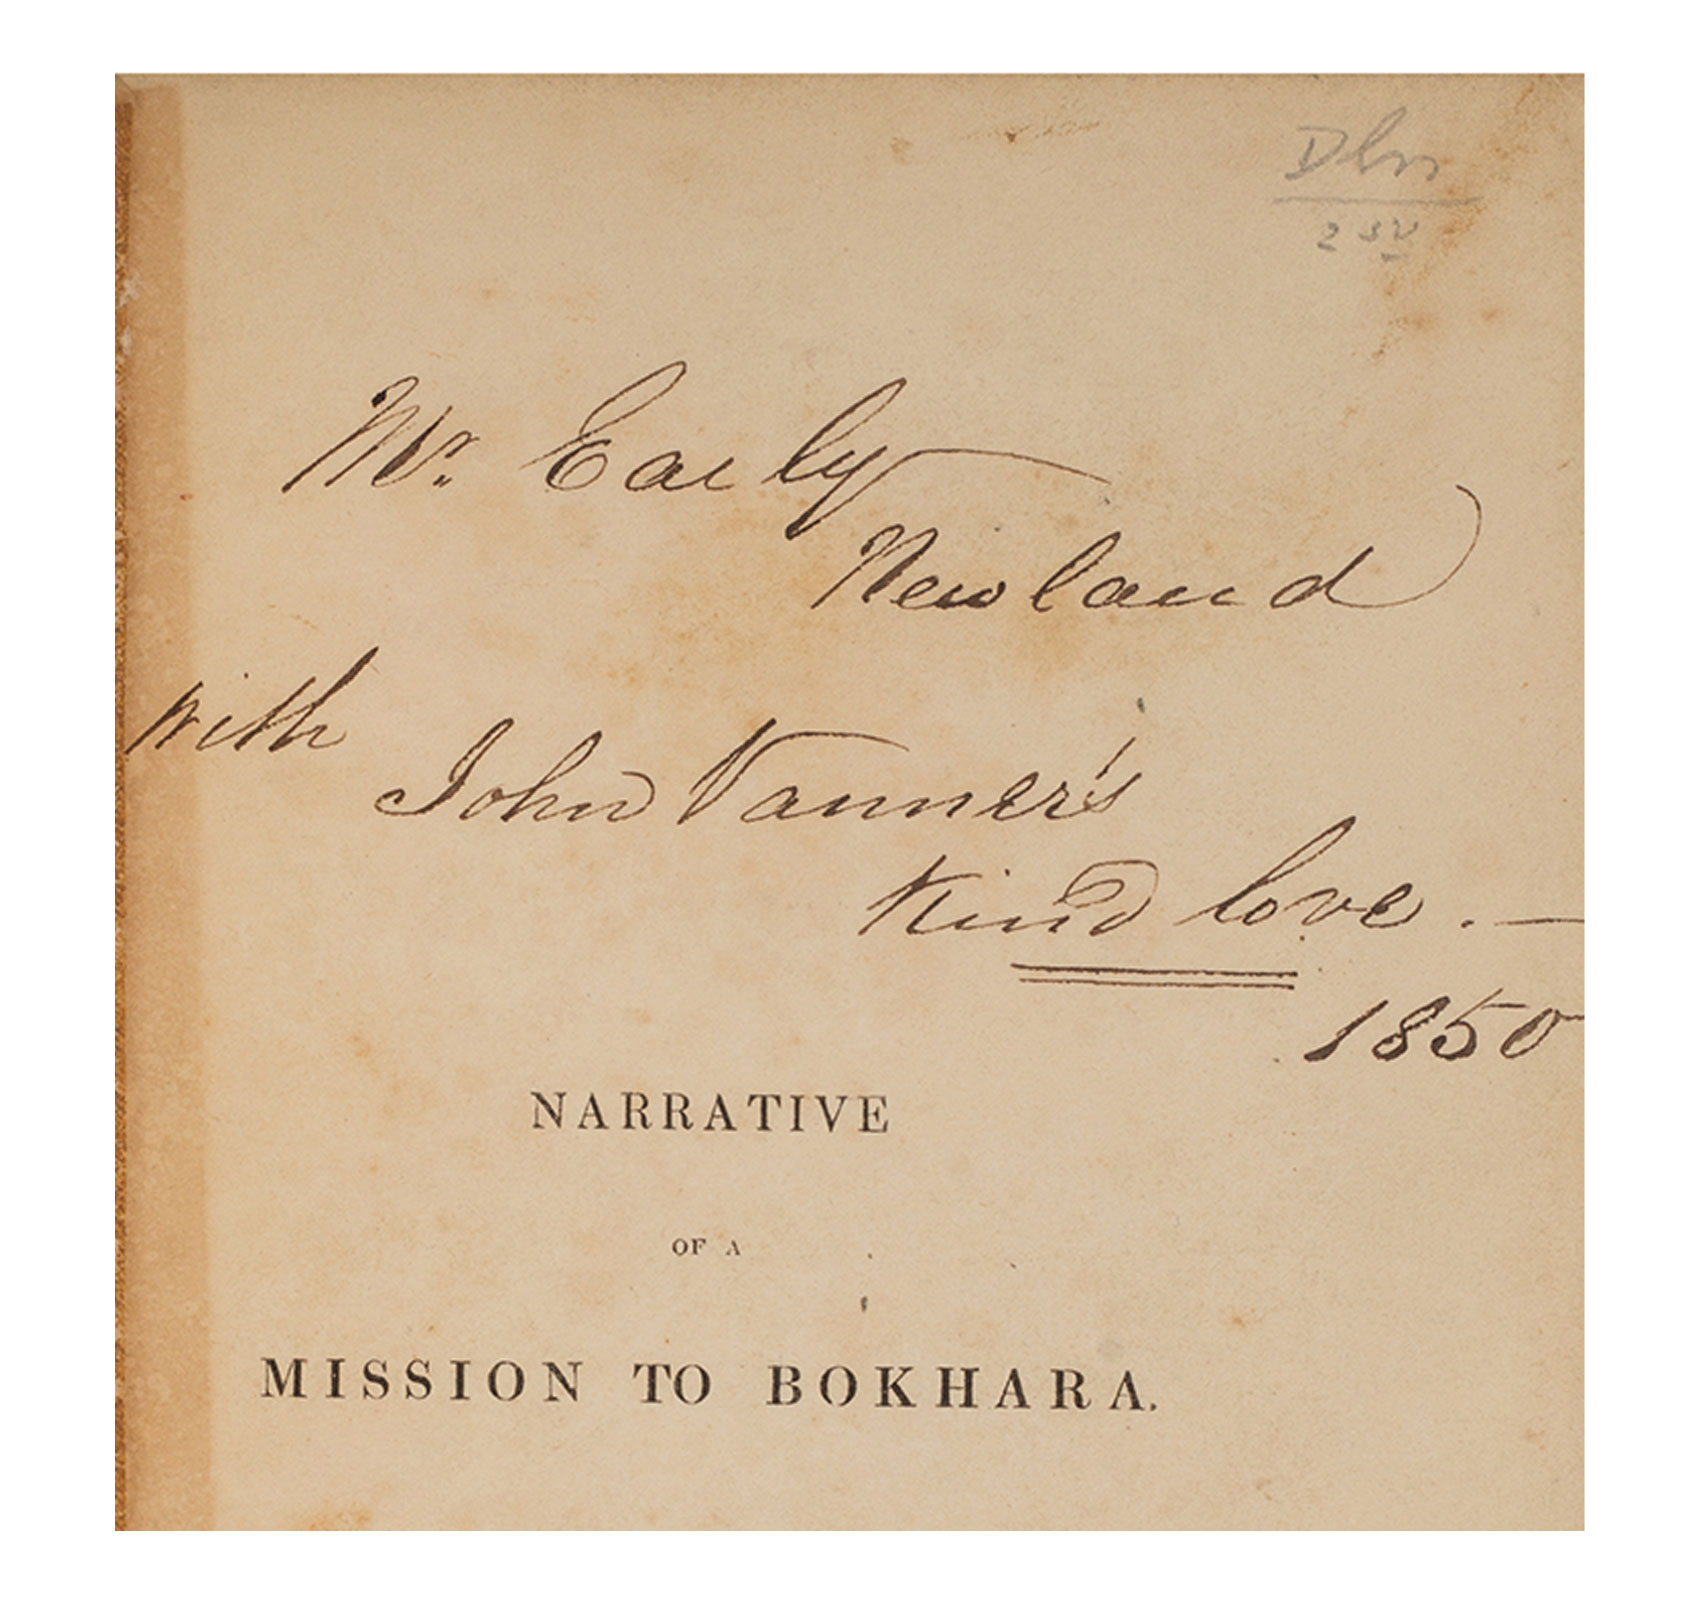 Mr. Early
Newland
with
John Vanner's
Kind love. —
1850
NARRATIVE
OF A
MISSION TO BOKHARA.